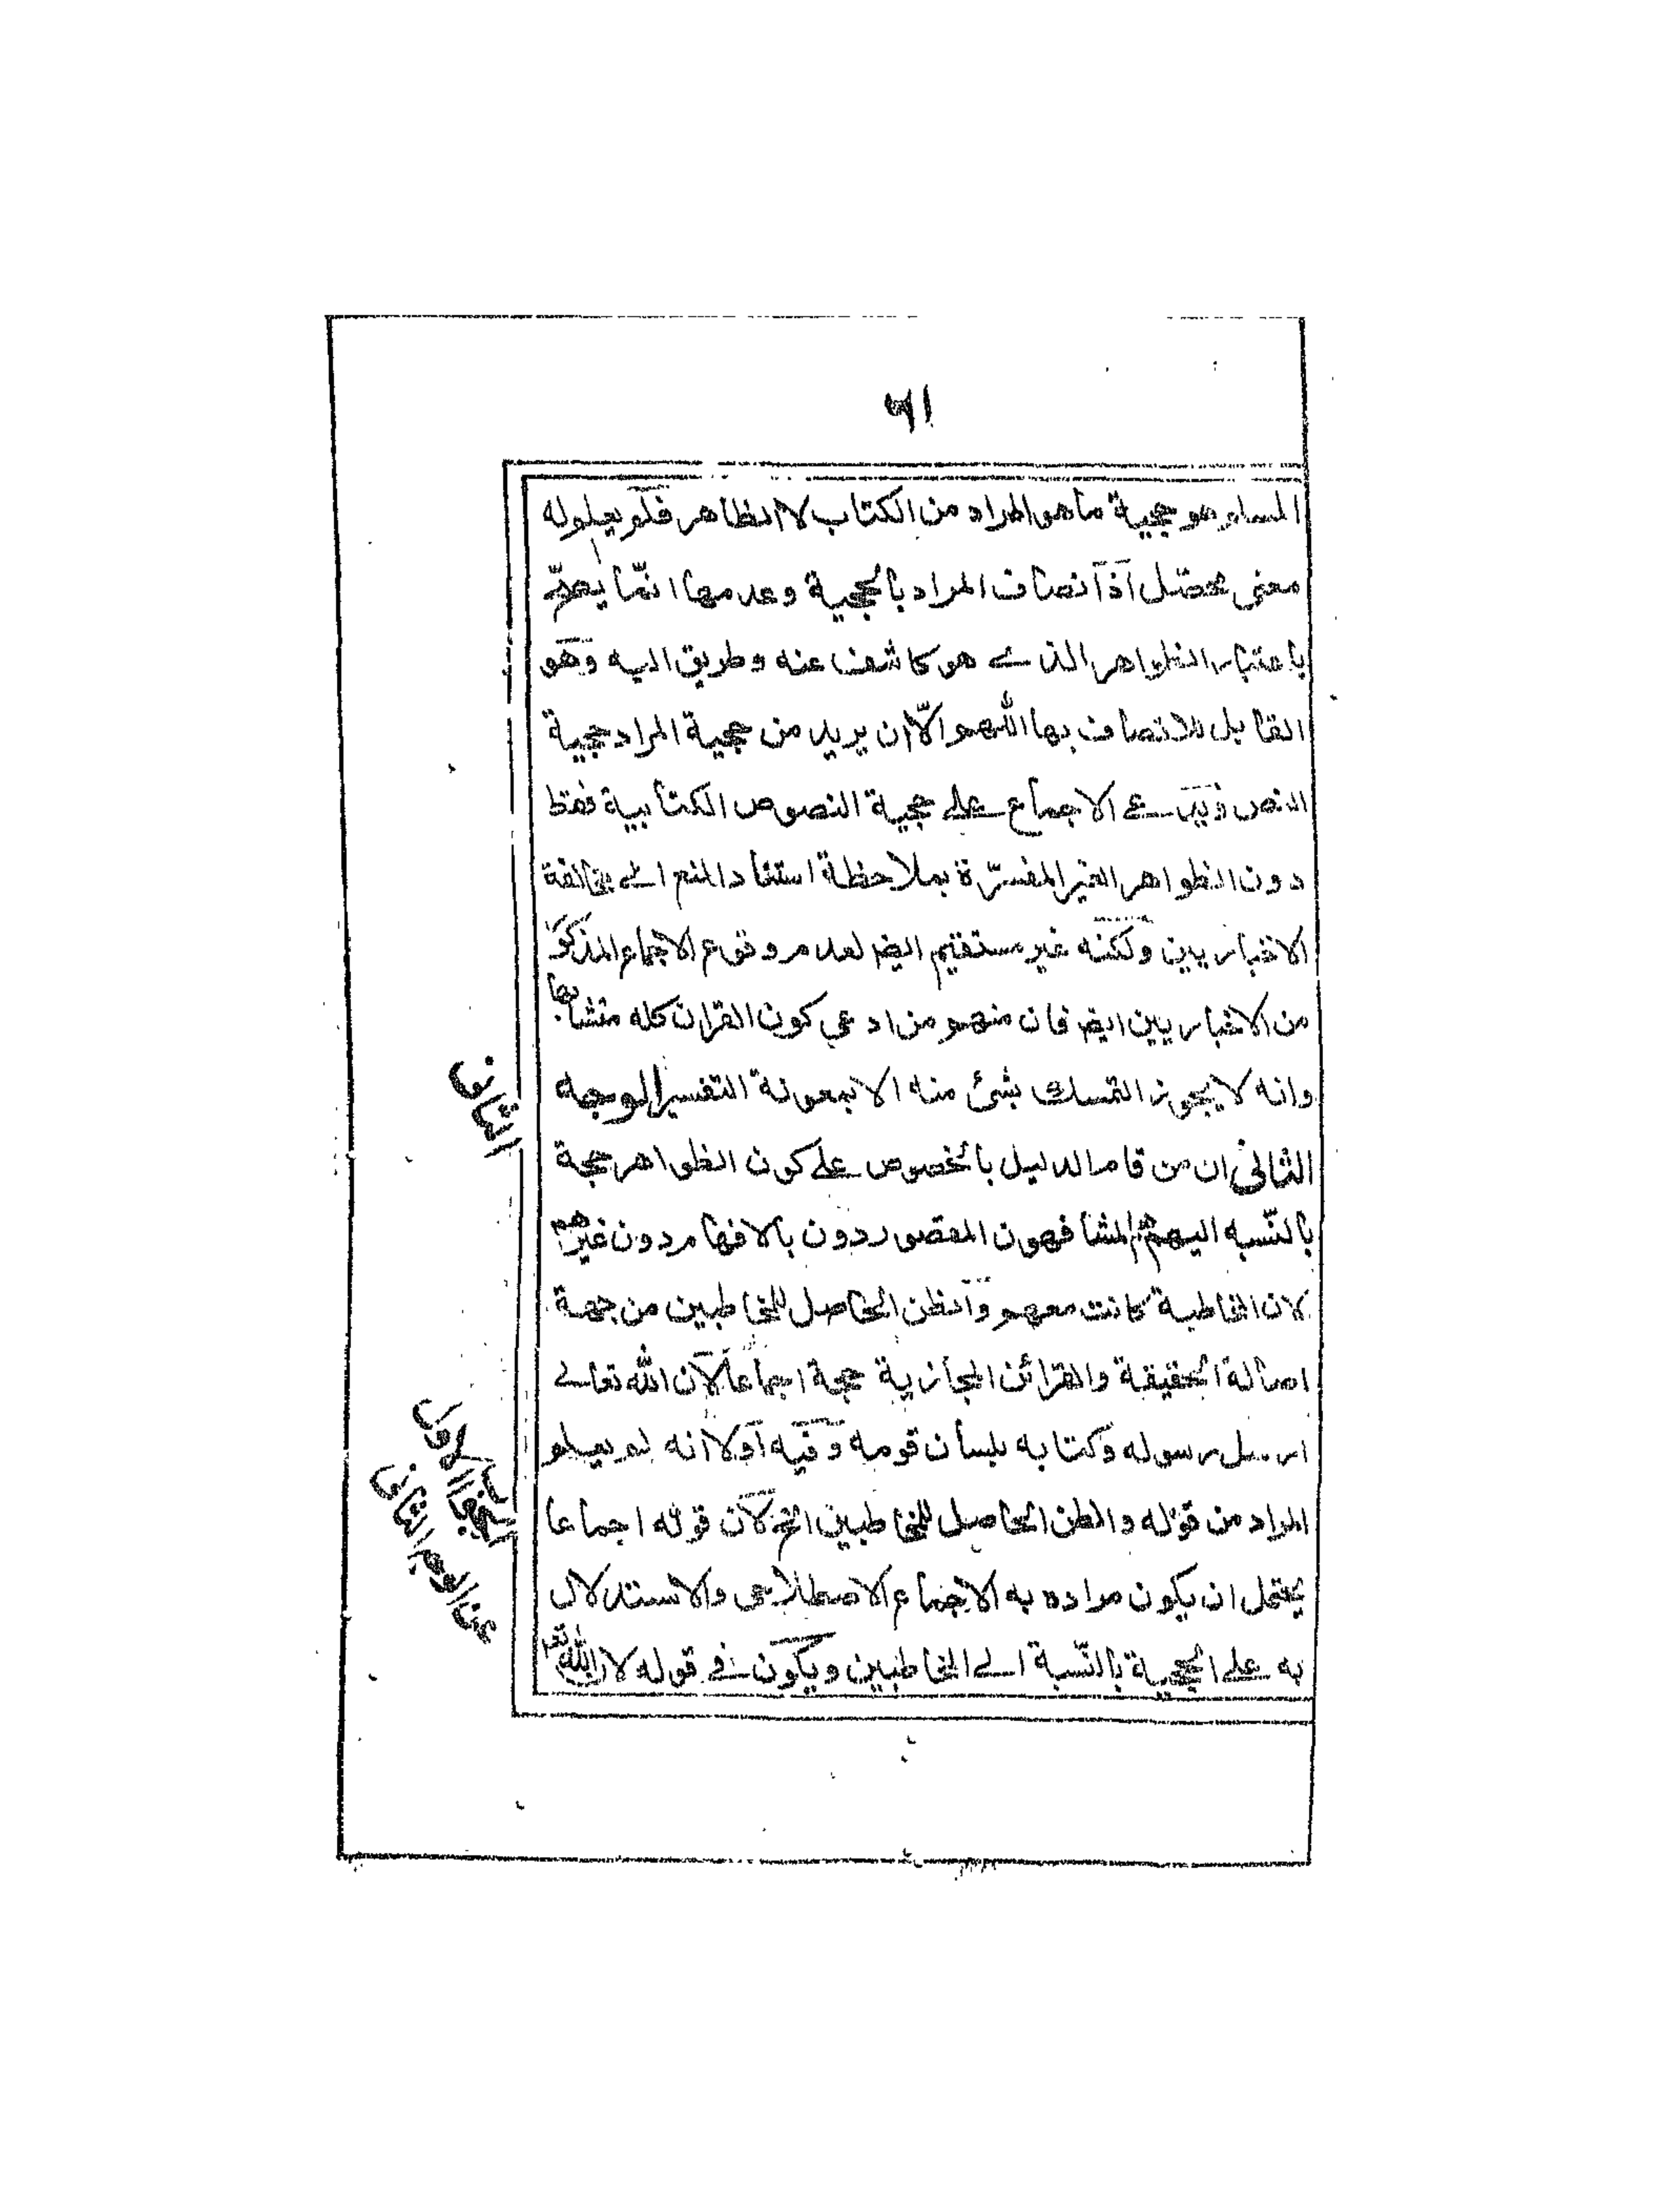 ٦١
المسلم هو حجية ما هو المراد من الكتاب لا الظاهر فلم يعلم له
معنى محصّل اذ اتصاف المراد بالحجية وعدمها انّما يصحّ
باعتبار الظواهر الذي هو كاشف عنه وطريق اليه وهو
القابل للاتصاف بها اللهم الّا ان يريد من حجية المراد حجية
النص ويدعي الاجماع على حجية النصوص الكتابية فقط
دون الظواهر الغير المفسّرة بملاحظة استناد المنع الى مخالفة
الاخباريين ولكنه غير مستقيم ايضا لعدم وقوع الاجماع المذكور
من الاخباريين ايضا فان منهم من ادعى كون القران كله متشابها
وانه لا يجوز التمسك بشئ منه الا بمعونة التفسير الوجه
الثاني ان من قام الدليل بالخصوص على كون الظواهر حجة
بالنّسبه اليهم هم المشافهون المقصودون بالافهام دون غيرهم
لان المخاطبة كانت معهم والظن الحاصل للمخاطبين من جهة
اصالة الحقيقة والقرائن المجازية حجة اجماعا لان الله تعالى
ارسل رسوله وكتابه بلسان قومه وفيه اولا انه لم يعلم
المراد من قوله والظن الحاصل للمخاطبين الخ لان قوله اجماعا
يحتمل ان يكون مراده به الاجماع الاصطلاحي والاستدلال
به على الحجية بالنّسبة الى المخاطبين ويكون في قوله لان الله تعه
الثاني
الجواب الاول
عن الوجه الثاني